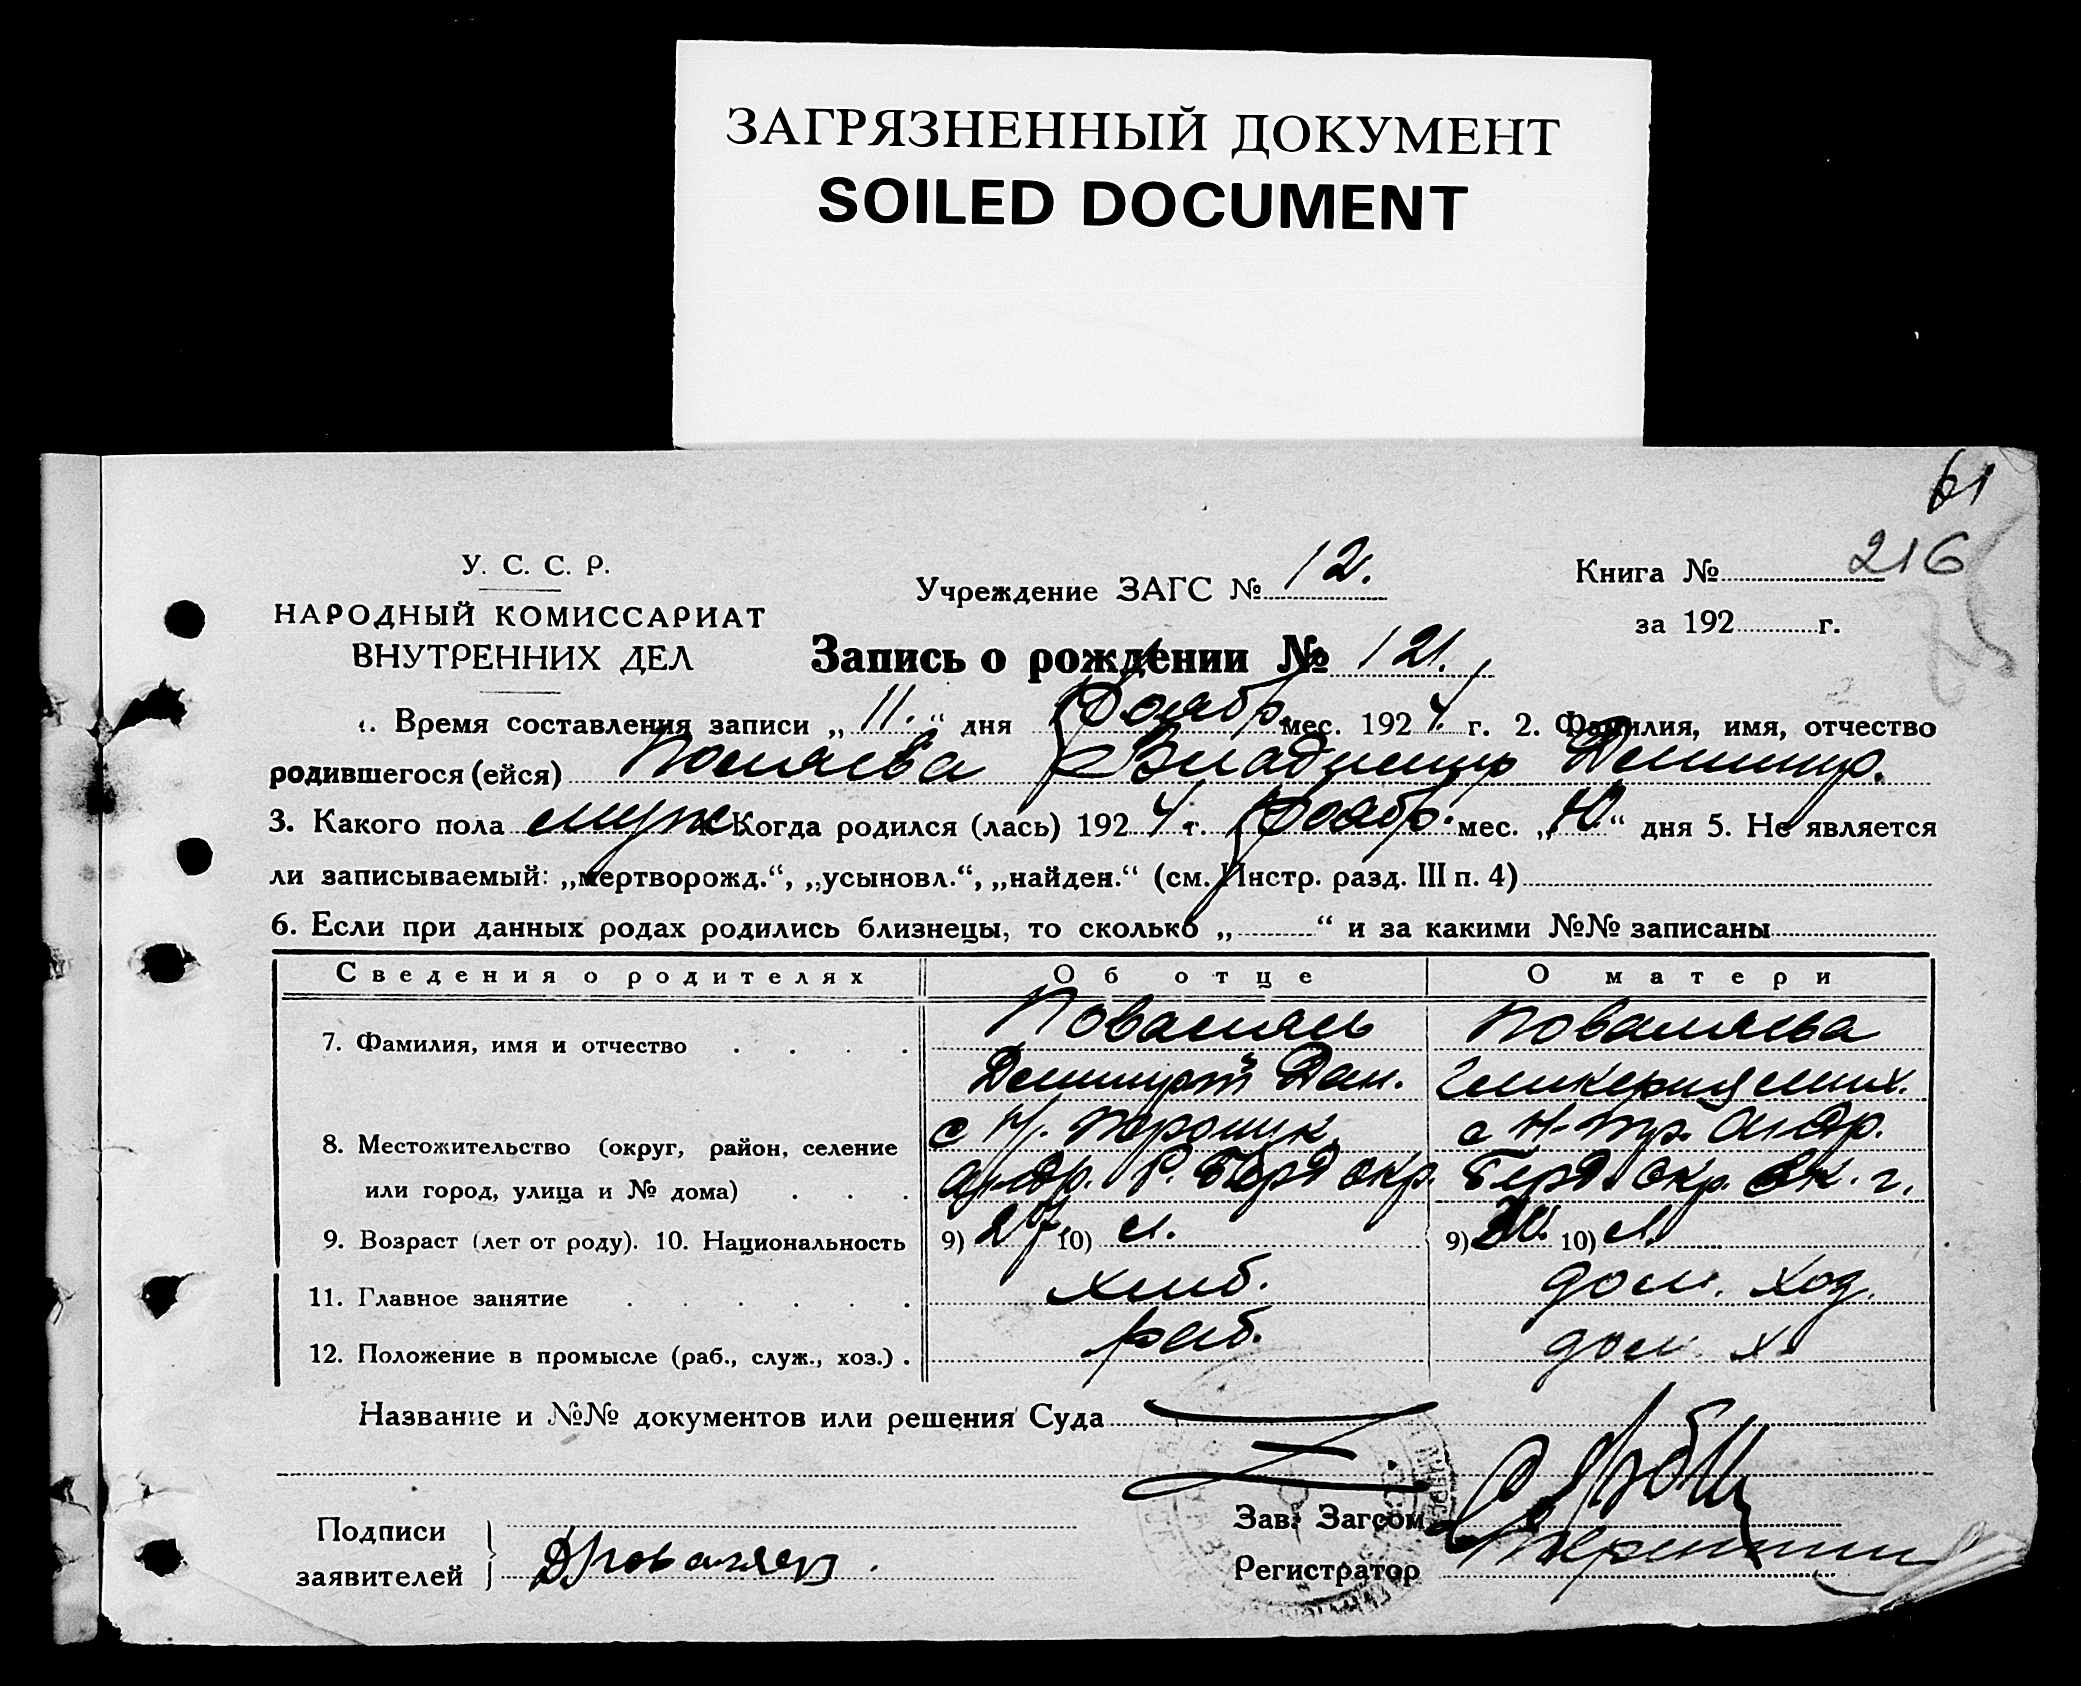 ЗАГРЯЗНЕННЫЙ ДОКУМЕНТ
SOILED DOCUMENT
61
216
У. С. С. Р.
НАРОДНЫЙ КОМИССАРИАТ
ВНУТРЕННИХ ДЕЛ
Учреждение ЗАГС № 12.
Книга №
за 192 г.
Запись о рождении № 121.
1. Время составления записи „11.“ дня Ноябр. мес. 1924 г. 2. Фамилия, имя, отчество
родившегося (ейся) Владимир Димитр.
3. Какого пола муж Когда родился (лась) 1924 г. Ноябр. мес. „10“ дня 5. Не является
ли записываемый: „мертворожд.“, „усыновл.“, „найден.“ (см. Инстр. разд. III п. 4)
6. Если при данных родах родились близнецы, то сколько „ “ и за какими №№ записаны
Сведения о родителях Об отце О матери
7. Фамилия, имя и отчество Поваляев Поваляева
Димитрий Дан. Гликерия Мих.
8. Местожительство (округ, район, селение с Н. с Н- Андр.
или город, улица и № дома) Андр. Р. Берд окр. Берд. окр.
9. Возраст (лет от роду). 10. Национальность 9) 27 10) 9) 10)
11. Главное занятие хлиб. дом. хоз.
12. Положение в промысле (раб., служ., хоз.) раб. дом. х
Название и №№ документов или решения Суда
Подписи
заявителей } ДПоваляев
Зав. Загсом
Регистратор